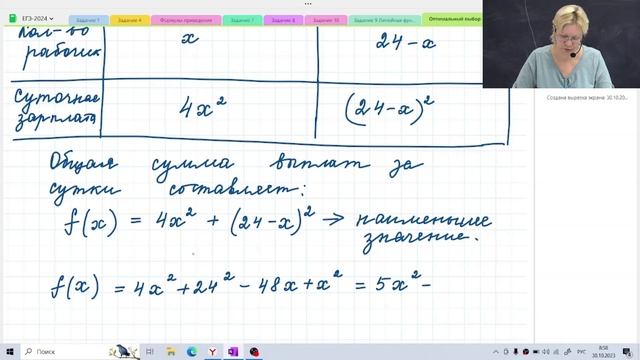 ЕГЭ-2024
Задание 1
Задание 4
Формулы приведения
Задание 7
Задание 8
Задание 10
Задание 9 Линейные фун...
Оптимальный выбор
кол-во
рабочих
x
24-x
суточная
зарплата
4x²
(24-x)²
Общая сумма выплат за
сутки составляет:
f(x) = 4x² + (24-x)² → наименьшее
значение.
f(x) = 4x² + 24² - 48x + x² = 5x² -
Создана вырезка экрана: 30.10.20...
Поиск
РУС
8:58
30.10.2023